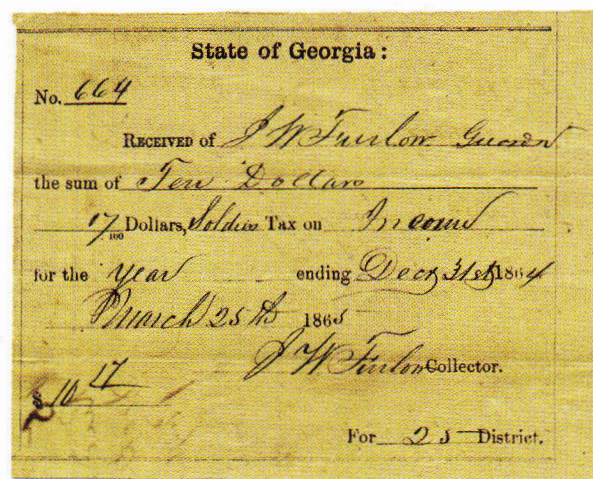 State of Georgia:
No. 664
RECEIVED of J W Furlow Guardn
the sum of Ten Dollars
17/100 Dollars, Soldiers Tax on Income
for the year ending Decr 31st 1864
March 25th 1865
J W Furlow Collector.
$ 10 17
For 25 District.